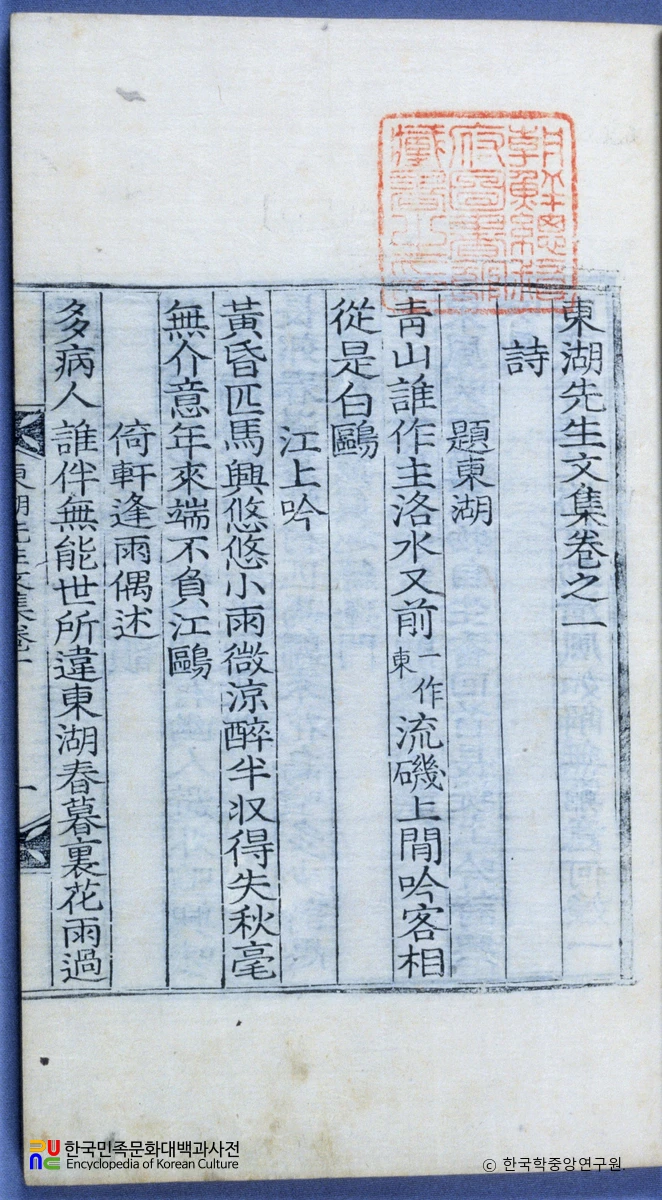 東湖先生文集卷之一
詩
題東湖
青山誰作主洛水又前一作東流磯上閒吟客相
從是白鷗
江上吟
黃昏匹馬興悠悠小雨微涼醉半收得失秋毫
無介意年來端不負江鷗
倚軒逢雨偶述
多病人誰伴無能世所違東湖春暮裏花雨過
東湖先生文集卷一
一
朝鮮總督
府圖書館
藏書之印
한국민족문화대백과사전
Encyclopedia of Korean Culture
© 한국학중앙연구원